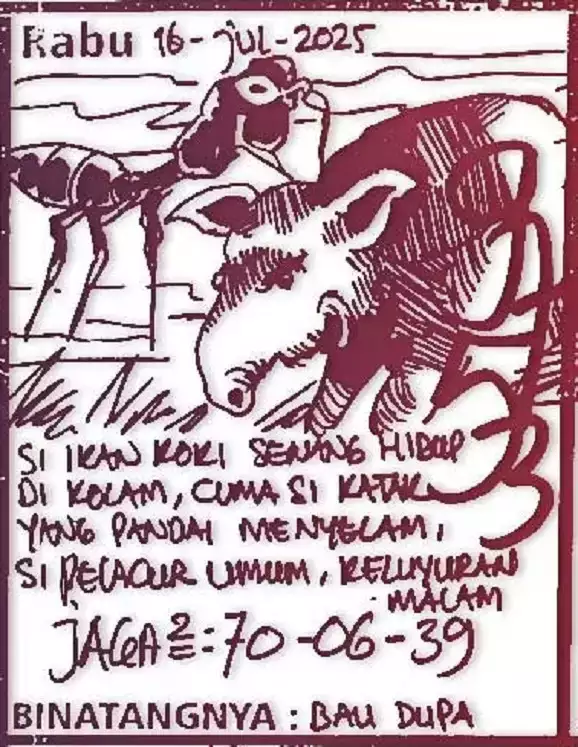 Rabu 16-JUL-2025
SI IKAN KOKI SENANG HIDUP
DI KOLAM, CUMA SI KATAK
YANG PANDAI MENYELAM,
SI PELACUR UMUM, KELUYURAN
MALAM
JAGA2: 70-06-39
BINATANGNYA : BAU DUPA